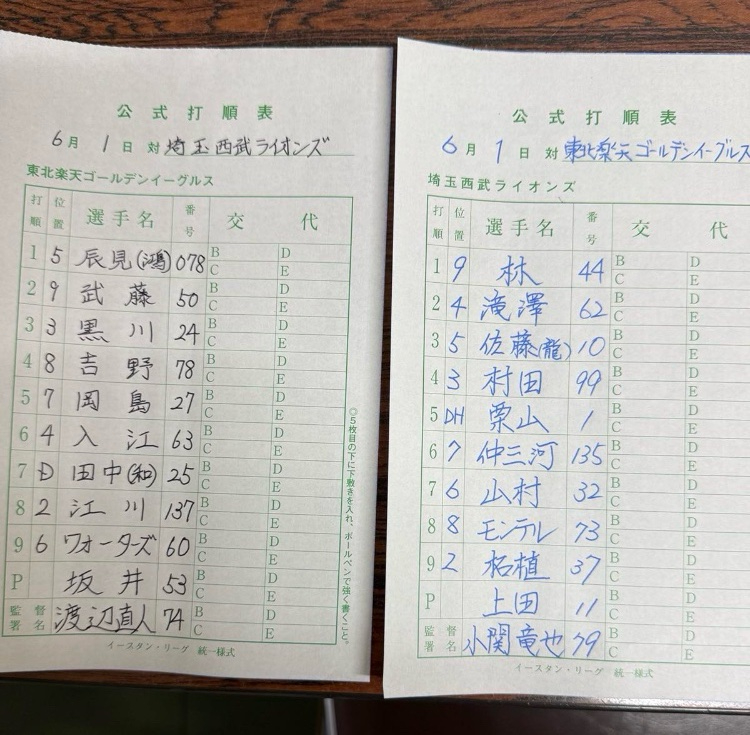 公式打順表
6月 1日 対 埼玉西武ライオンズ
東北楽天ゴールデンイーグルス
打順 位置 選手名 番号 交代
1 5 辰見(鴻) 078 B D
C E
2 9 武藤 50 B D
C E
3 3 黒川 24 B D
C E
4 8 吉野 78 B D
C E
5 7 岡島 27 B D
C E
6 4 入江 63 B D
C E
7 D 田中(和) 25 B D
C E
8 2 江川 137 B D
C E
9 6 ウォーターズ 60 B D
C E
P 坂井 53 B D
C E
監督署名 渡辺直人 74 B D
C E
イースタン・リーグ 統一様式
◎5枚目の下に下敷きを入れ、ボールペンで強く書くこと。
公式打順表
6月 1日 対 東北楽天ゴールデンイーグルス
埼玉西武ライオンズ
打順 位置 選手名 番号 交代
1 9 林 44 B D
C E
2 4 滝澤 62 B D
C E
3 5 佐藤(龍) 10 B D
C E
4 3 村田 99 B D
C E
5 DH 栗山 1 B D
C E
6 7 仲三河 135 B D
C E
7 6 山村 32 B D
C E
8 8 モンテル 73 B D
C E
9 2 柘植 37 B D
C E
P 上田 11 B D
C E
監督署名 小関竜也 79 B D
C E
イースタン・リーグ 統一様式